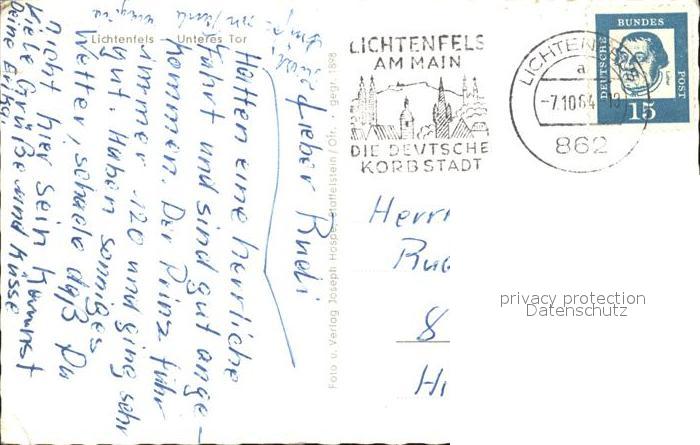 Lichtenfels Unteres Tor
Lieber Rudi
Hatten eine herrliche
Fahrt und sind gut ange-
kommen. Der Prinz fuhr
immer 120 und ging sehr
gut. Haben sonniges
Wetter, schade daß Du
nicht hier sein kannst
Viele Grüße und Küsse
Deine Erika
Foto u. Verlag Joseph Hospe, Staffelstein/Ofr. · gegr. 1898
LICHTENFELS
AM MAIN
DIE DEUTSCHE
KORBSTADT
LICHTENFELS
a
-7.10.64
862
DEUTSCHE
BUNDES
POST
15
Herrn
8
privacy protection
Datenschutz